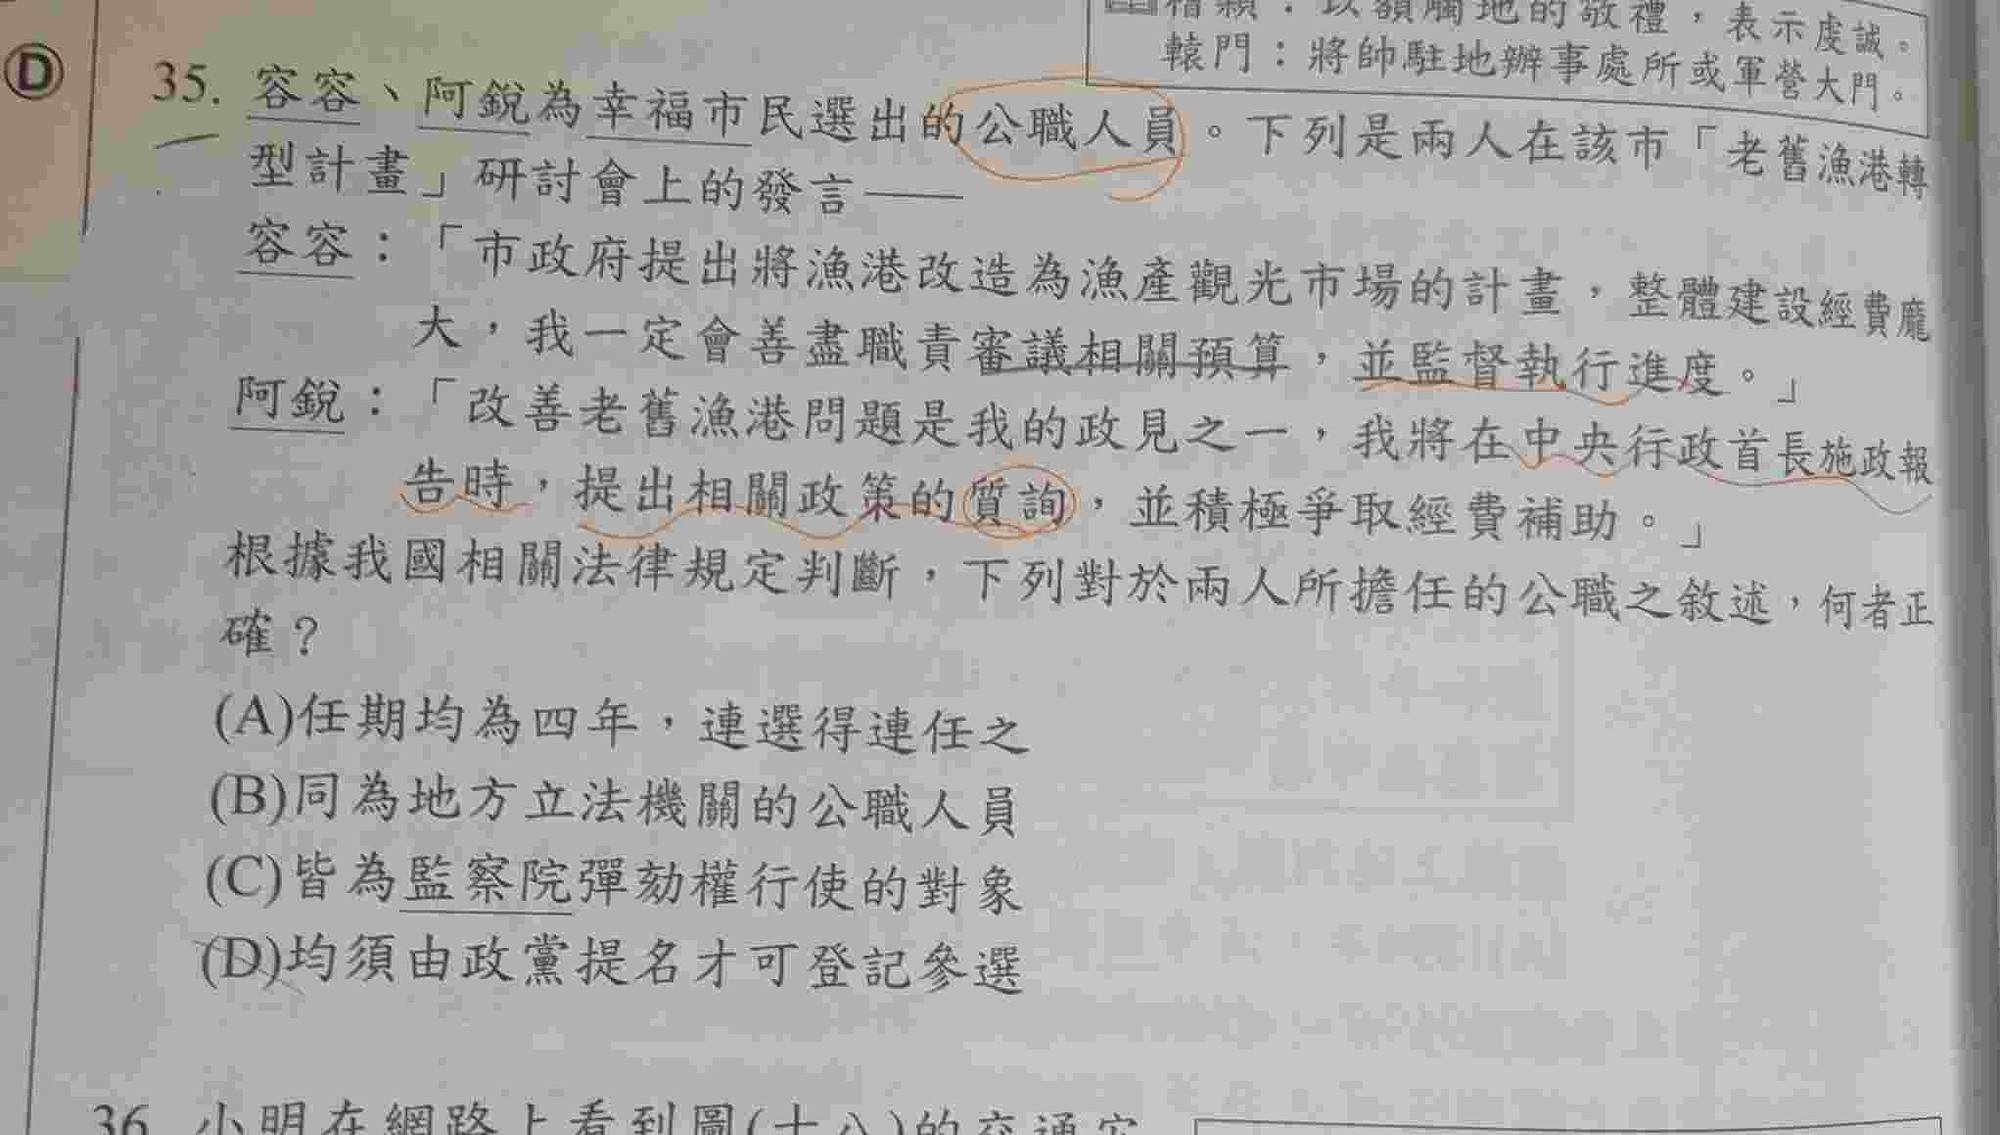 稽顙：以額觸地的敬禮，表示虔誠。
轅門：將帥駐地辦事處所或軍營大門。
D
35. 容容、阿銳為幸福市民選出的公職人員。下列是兩人在該市「老舊漁港轉
型計畫」研討會上的發言——
容容：「市政府提出將漁港改造為漁產觀光市場的計畫，整體建設經費龐
大，我一定會善盡職責審議相關預算，並監督執行進度。」
阿銳：「改善老舊漁港問題是我的政見之一，我將在中央行政首長施政報
告時，提出相關政策的質詢，並積極爭取經費補助。」
根據我國相關法律規定判斷，下列對於兩人所擔任的公職之敘述，何者正
確？
(A)任期均為四年，連選得連任之
(B)同為地方立法機關的公職人員
(C)皆為監察院彈劾權行使的對象
(D)均須由政黨提名才可登記參選
36. 小明在網路上看到圖(十八)的交通